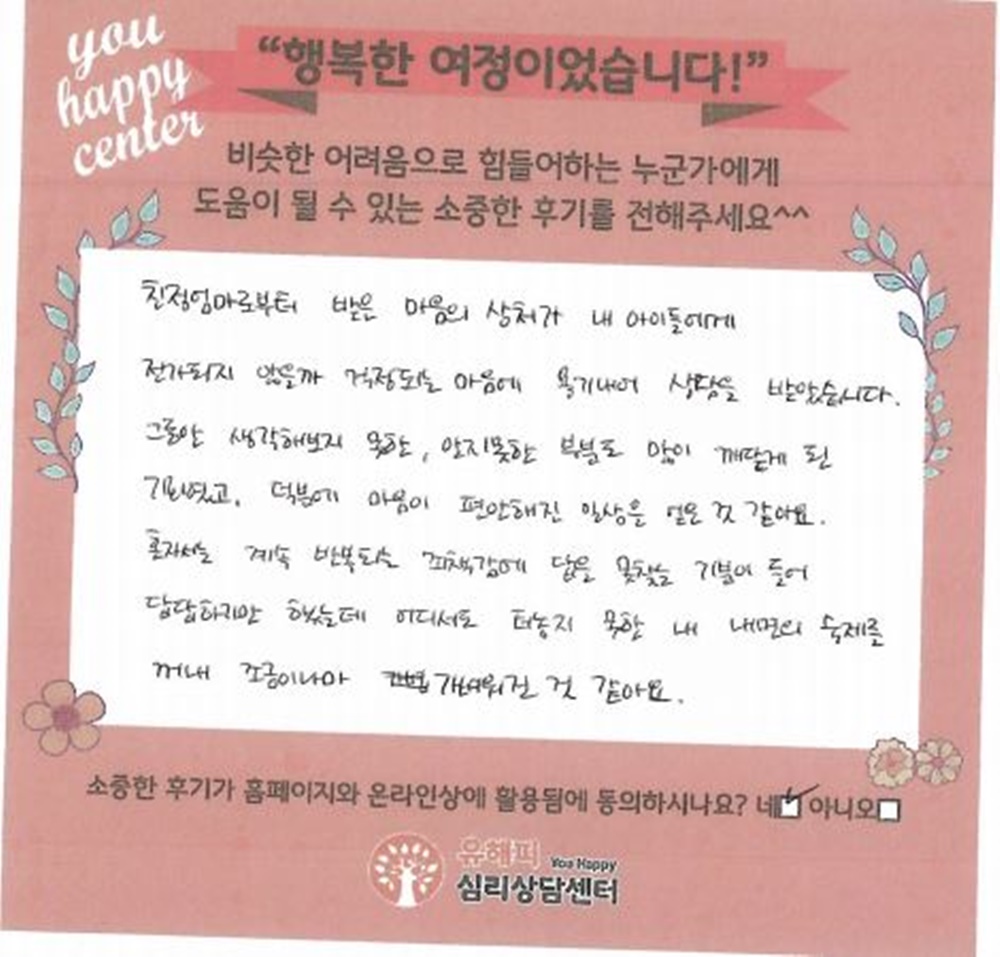 you
happy
center
“행복한 여정이었습니다!”
비슷한 어려움으로 힘들어하는 누군가에게
도움이 될 수 있는 소중한 후기를 전해주세요^^
친정엄마로부터 받은 마음의 상처가 내 아이들에게
전가되지 않을까 걱정되는 마음에 용기내어 상담을 받았습니다.
그동안 생각해보지 못한, 알지못한 부분도 많이 깨닫게 된
기회였고, 덕분에 마음이 편안해진 일상을 얻은 것 같아요.
혼자서는 계속 반복되는 죄책감에 답을 못찾는 기분이 들어
답답하기만 했는데 어디서도 터놓지 못한 내 내면의 숙제를
꺼내 조금이나마 가벼워진 것 같아요.
소중한 후기가 홈페이지와 온라인상에 활용됨에 동의하시나요? 네 아니오
유해피 You Happy
심리상담센터